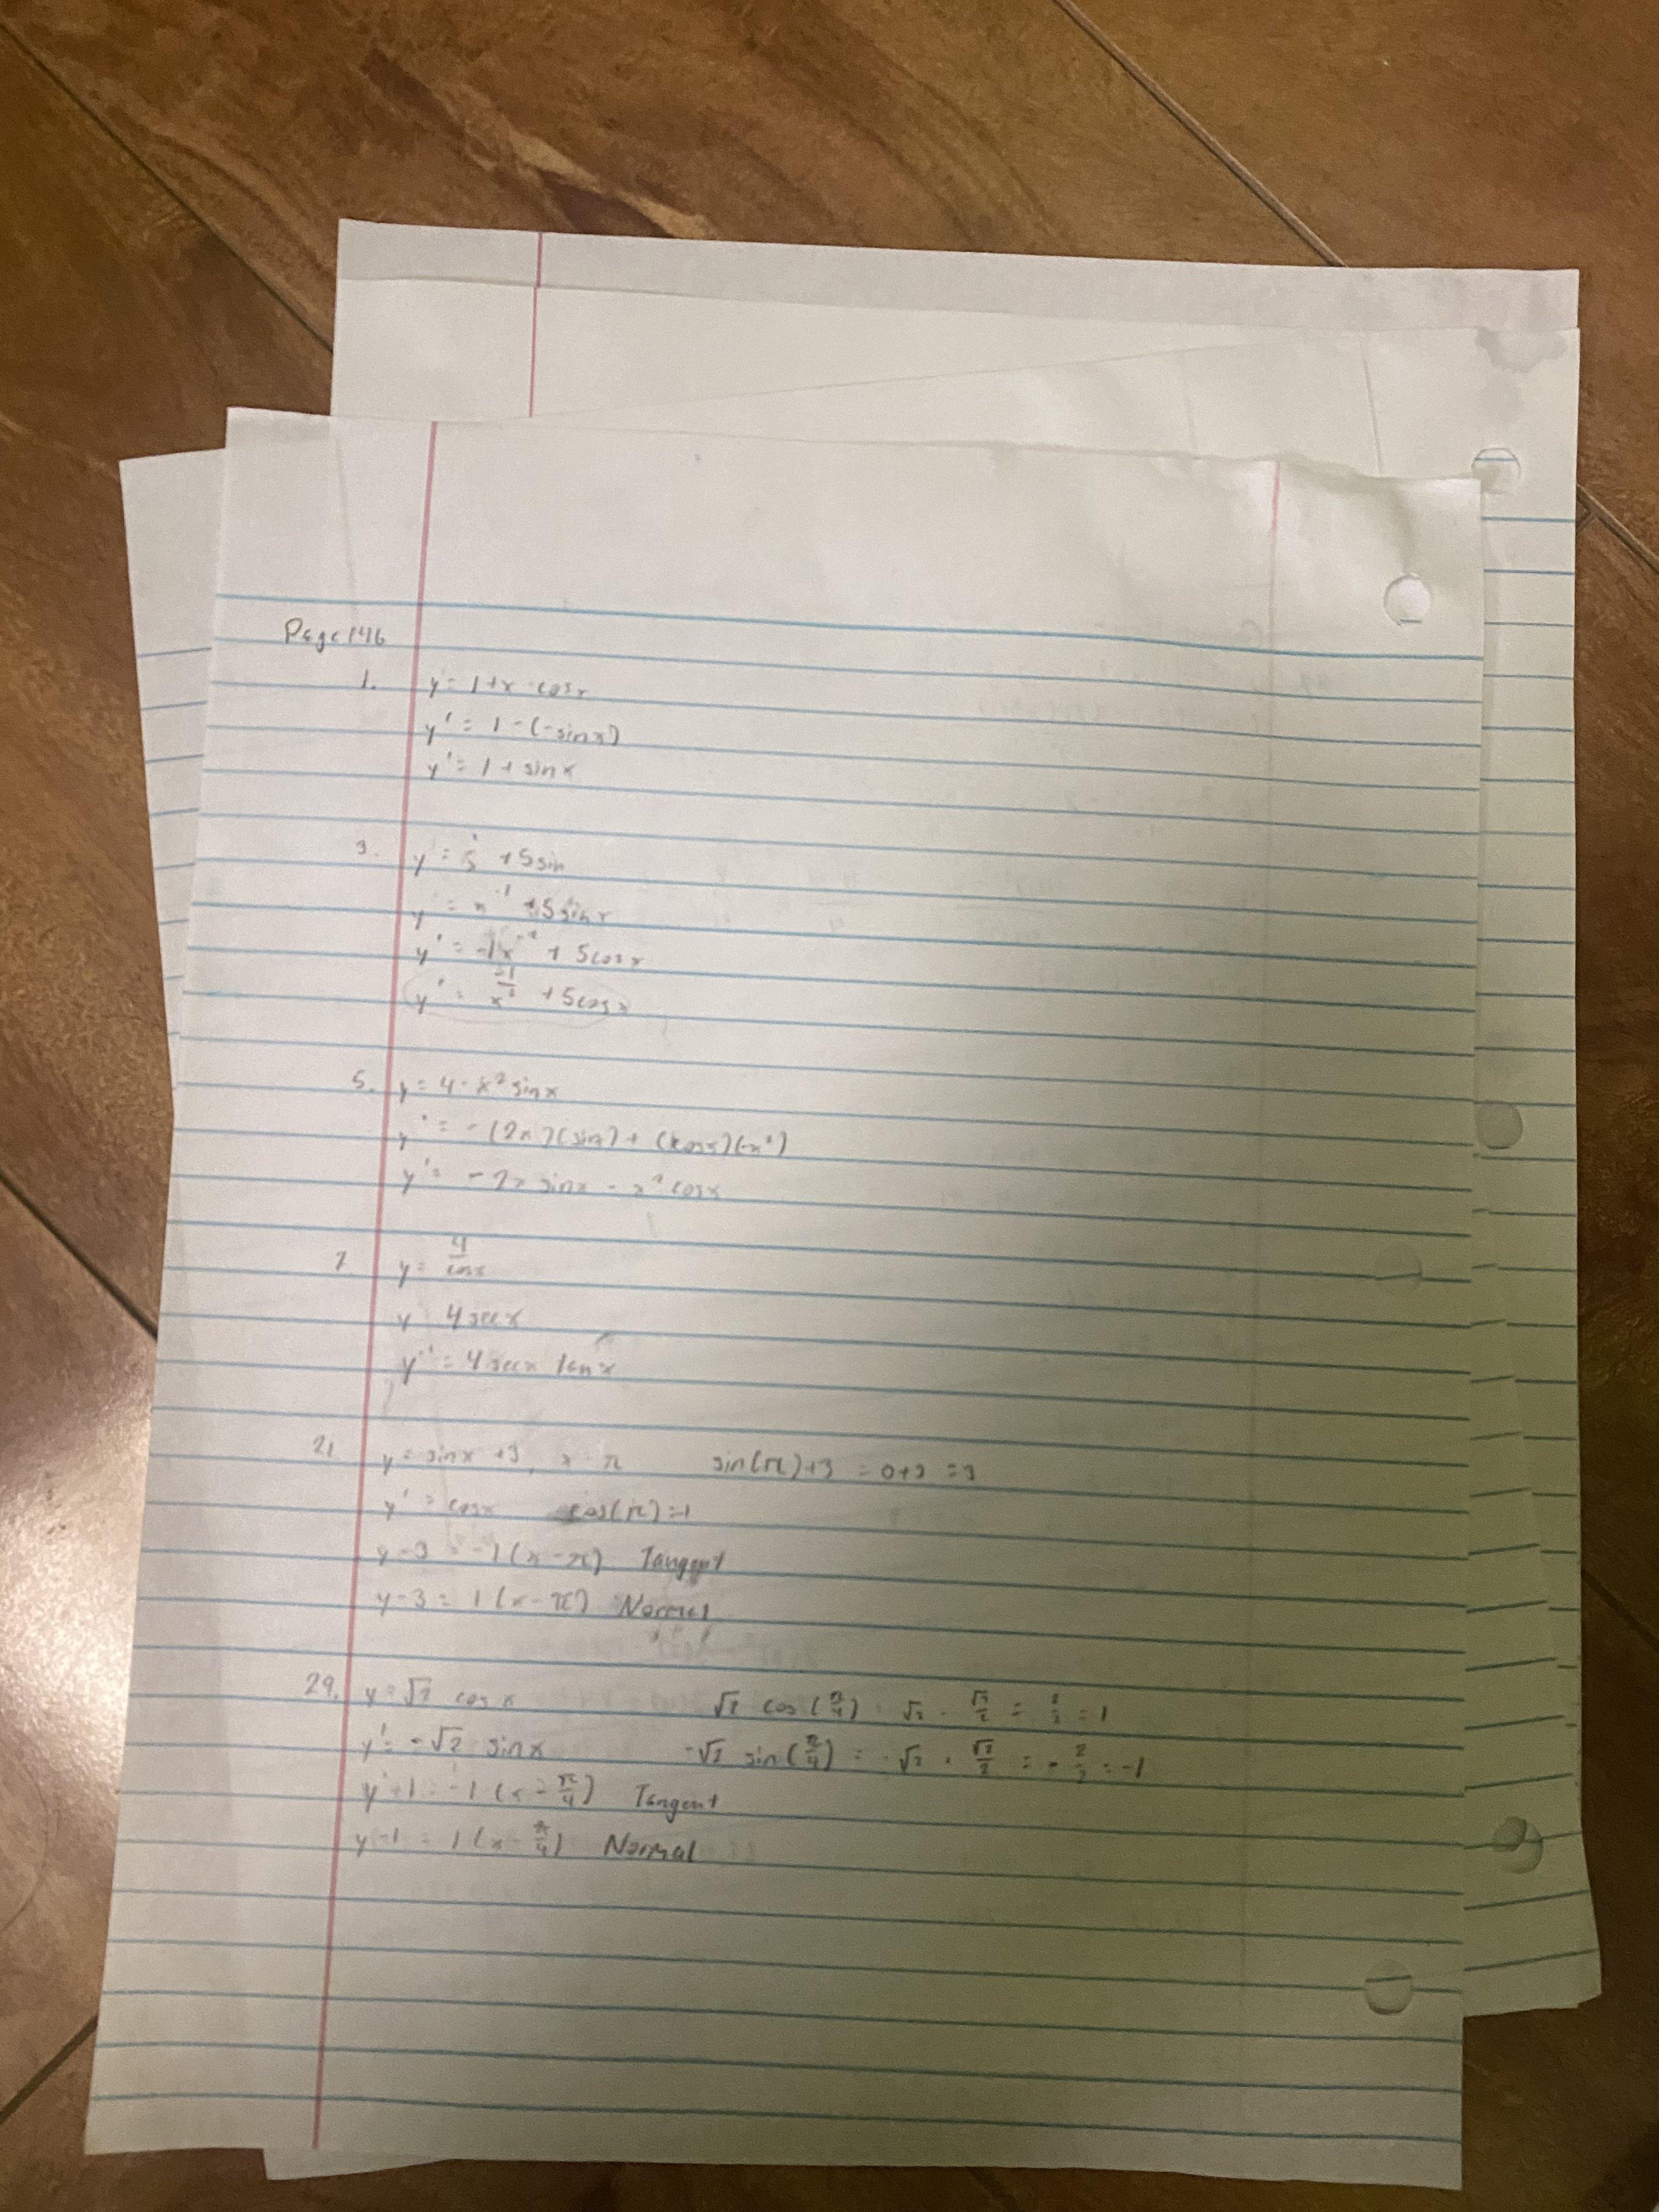 Page 146
1. y = 1 + x - cosx
y' = 1 - (-sinx)
y' = 1 + sinx
3. y = + 5 sin
y = x^-1 + 5 sinx
y' = -1x^-2 + 5cosx
y' = -1/x² + 5cosx
5. y = 4 - x² sinx
y' = - (2x)(sinx) + (cosx)(-x²)
y' = -2x sinx - x² cosx
7. y = 4/cosx
y 4 secx
y' = 4 secx tanx
21. y = sinx + 3, x = π sin(π)+3 = 0+3 = 3
y' = cosx cos(π) = -1
y - 3 = -1(x - π) Tangent
y - 3 = 1(x - π) Normal
29. y = √2 cos x √2 cos(π/4) = √2 · √2/2 = 2/2 = 1
y' = -√2 sinx -√2 sin(π/4) = -√2 · √2/2 = -2/2 = -1
y - 1 = -1(x - π/4) Tangent
y - 1 = 1(x - π/4) Normal